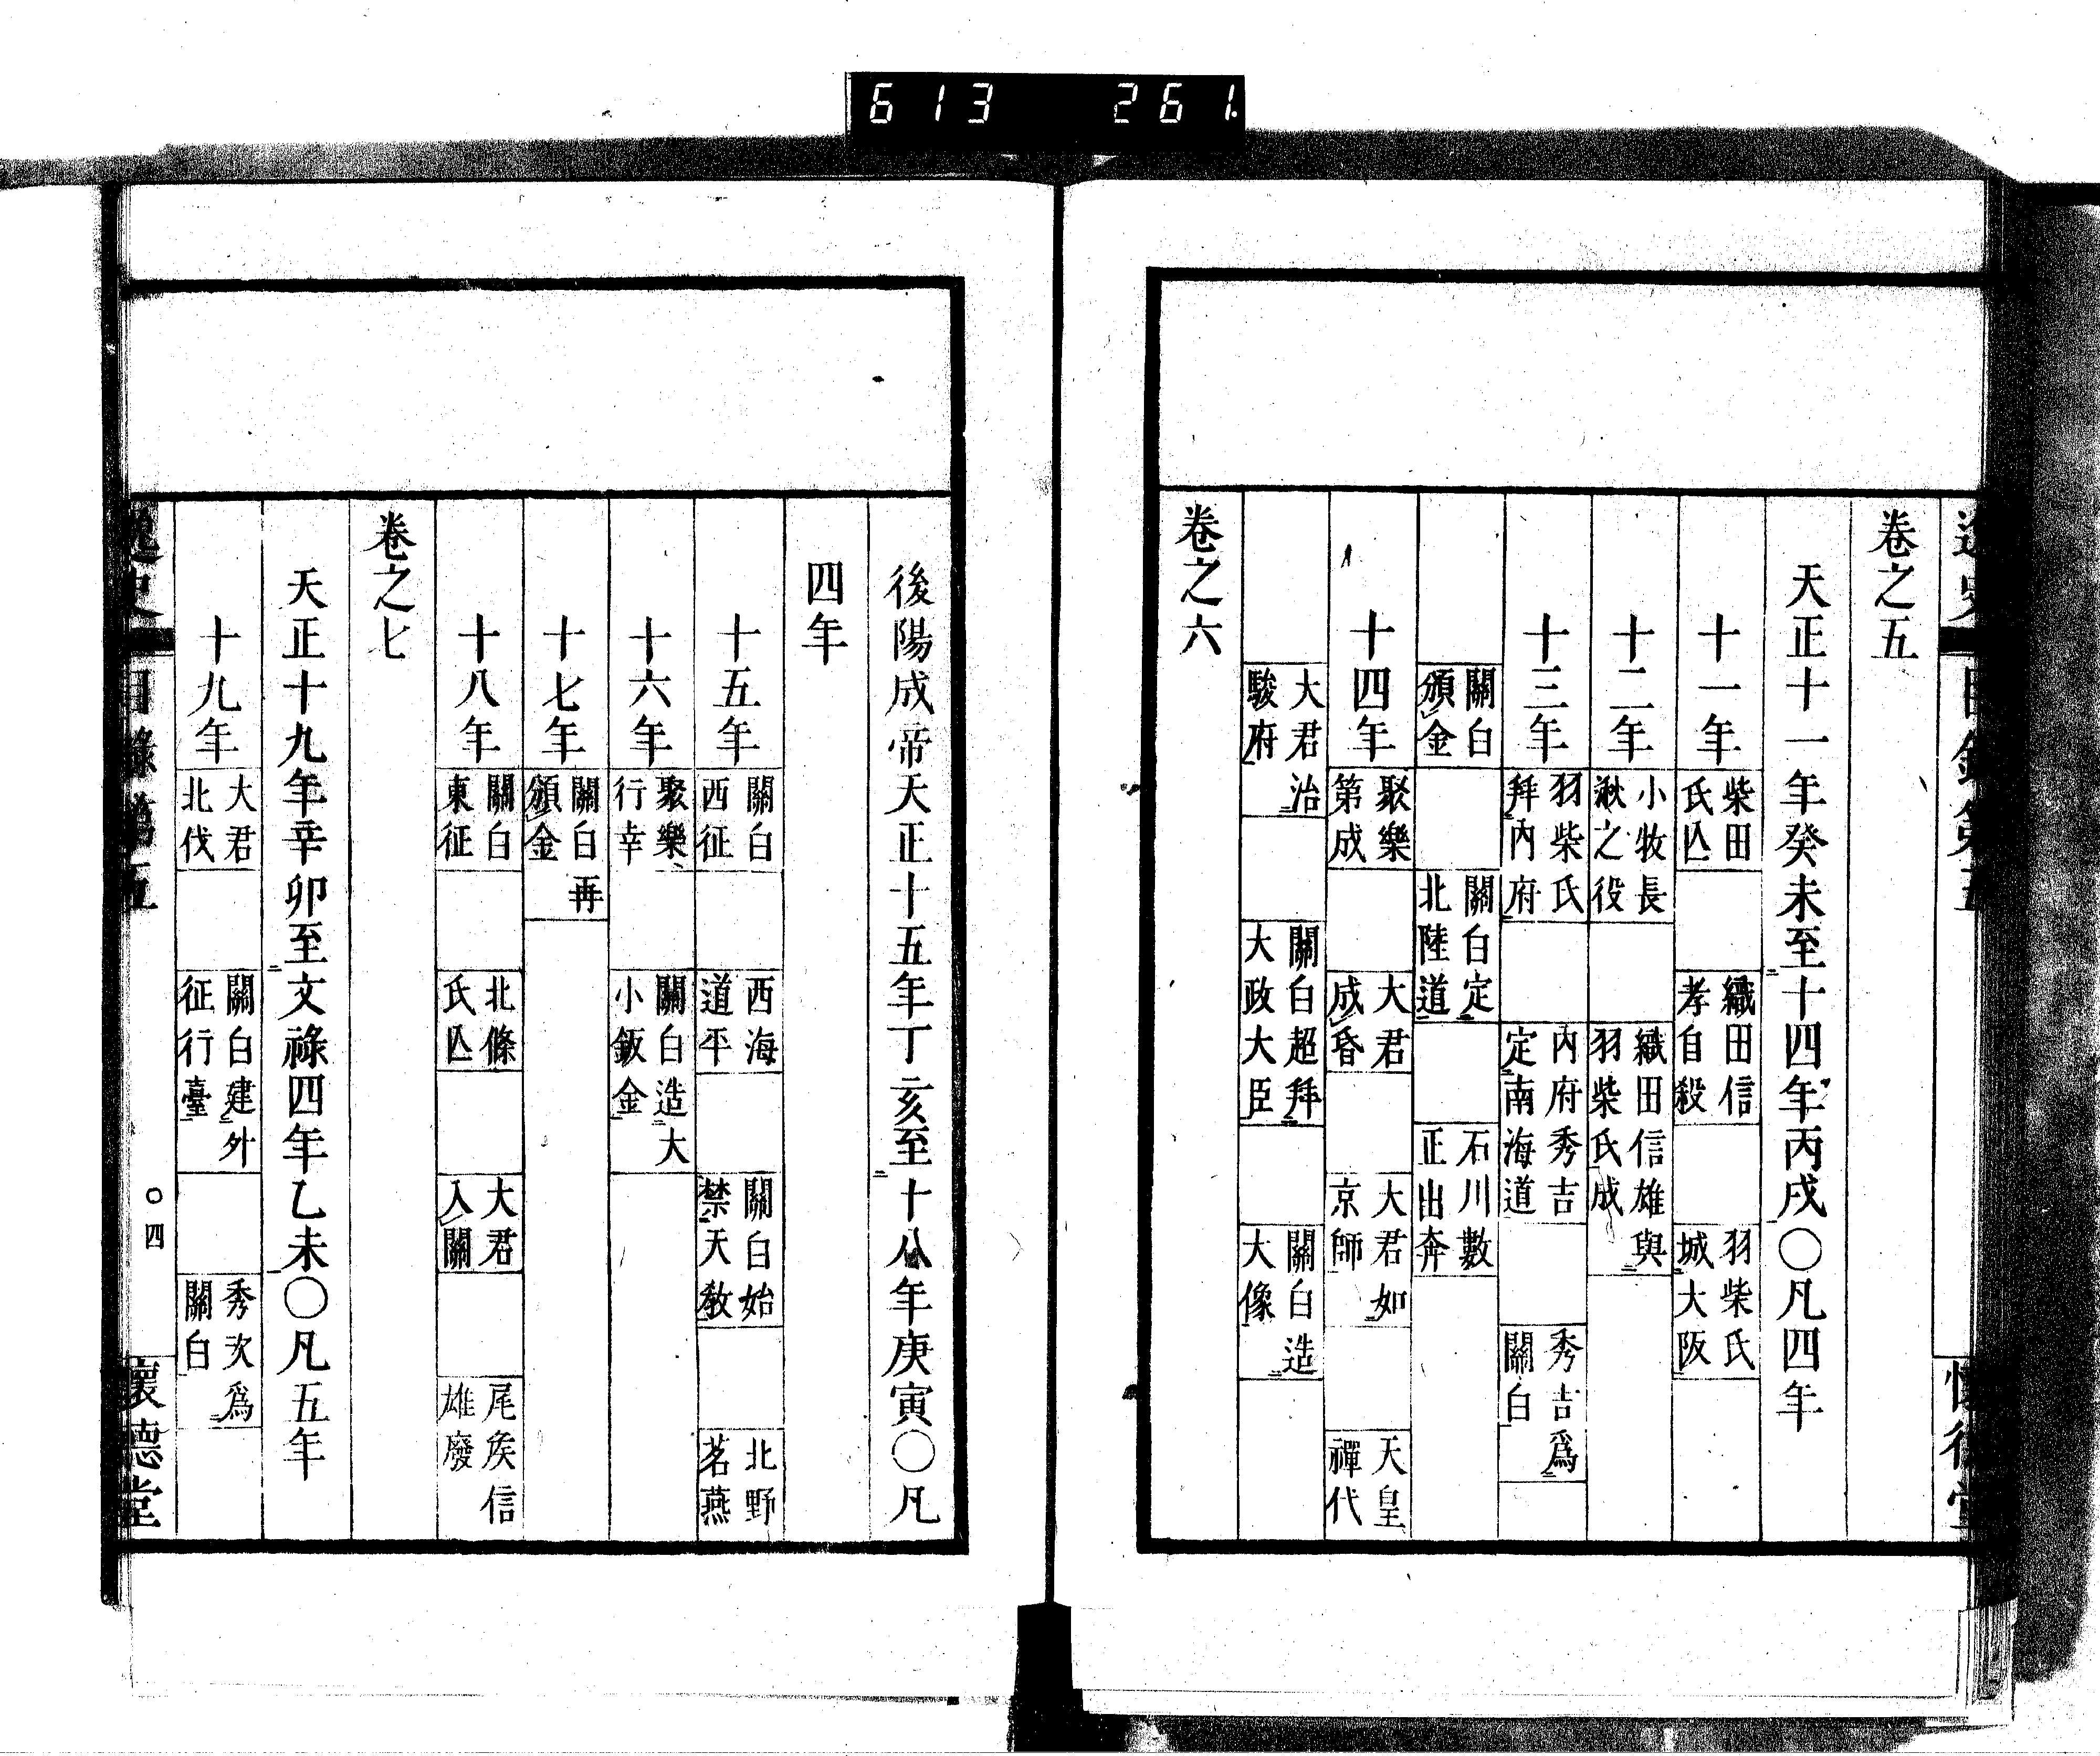 613 261
卷之五
天正十一年癸未至十四年丙戌〇凡四年
十一年 柴田氏亾 織田信孝自殺 羽柴氏城大阪
十二年 小牧長湫之役 織田信雄與羽柴氏成
十三年 羽柴氏拜內府 內府秀吉定南海道 秀吉爲關白
關白頒金 關白定北陸道 石川數正出奔
十四年 聚樂第成 大君成昏 大君如京師 天皇禪代
大君治駿府 關白超拜大政大臣 關白造大像
卷之六
後陽成帝天正十五年丁亥至十八年庚寅〇凡
四年
十五年 關白西征 西海道平 關白始禁天教 北野茗燕
十六年 聚樂行幸 關白造大小鈑金
十七年 關白再頒金
十八年 關白東征 北條氏亾 大君入關 尾矦信雄廢
卷之七
天正十九年辛卯至文祿四年乙未〇凡五年
十九年 大君北伐 關白建外征行臺 秀次爲關白
逸史 目錄第五 〇四 懷德堂